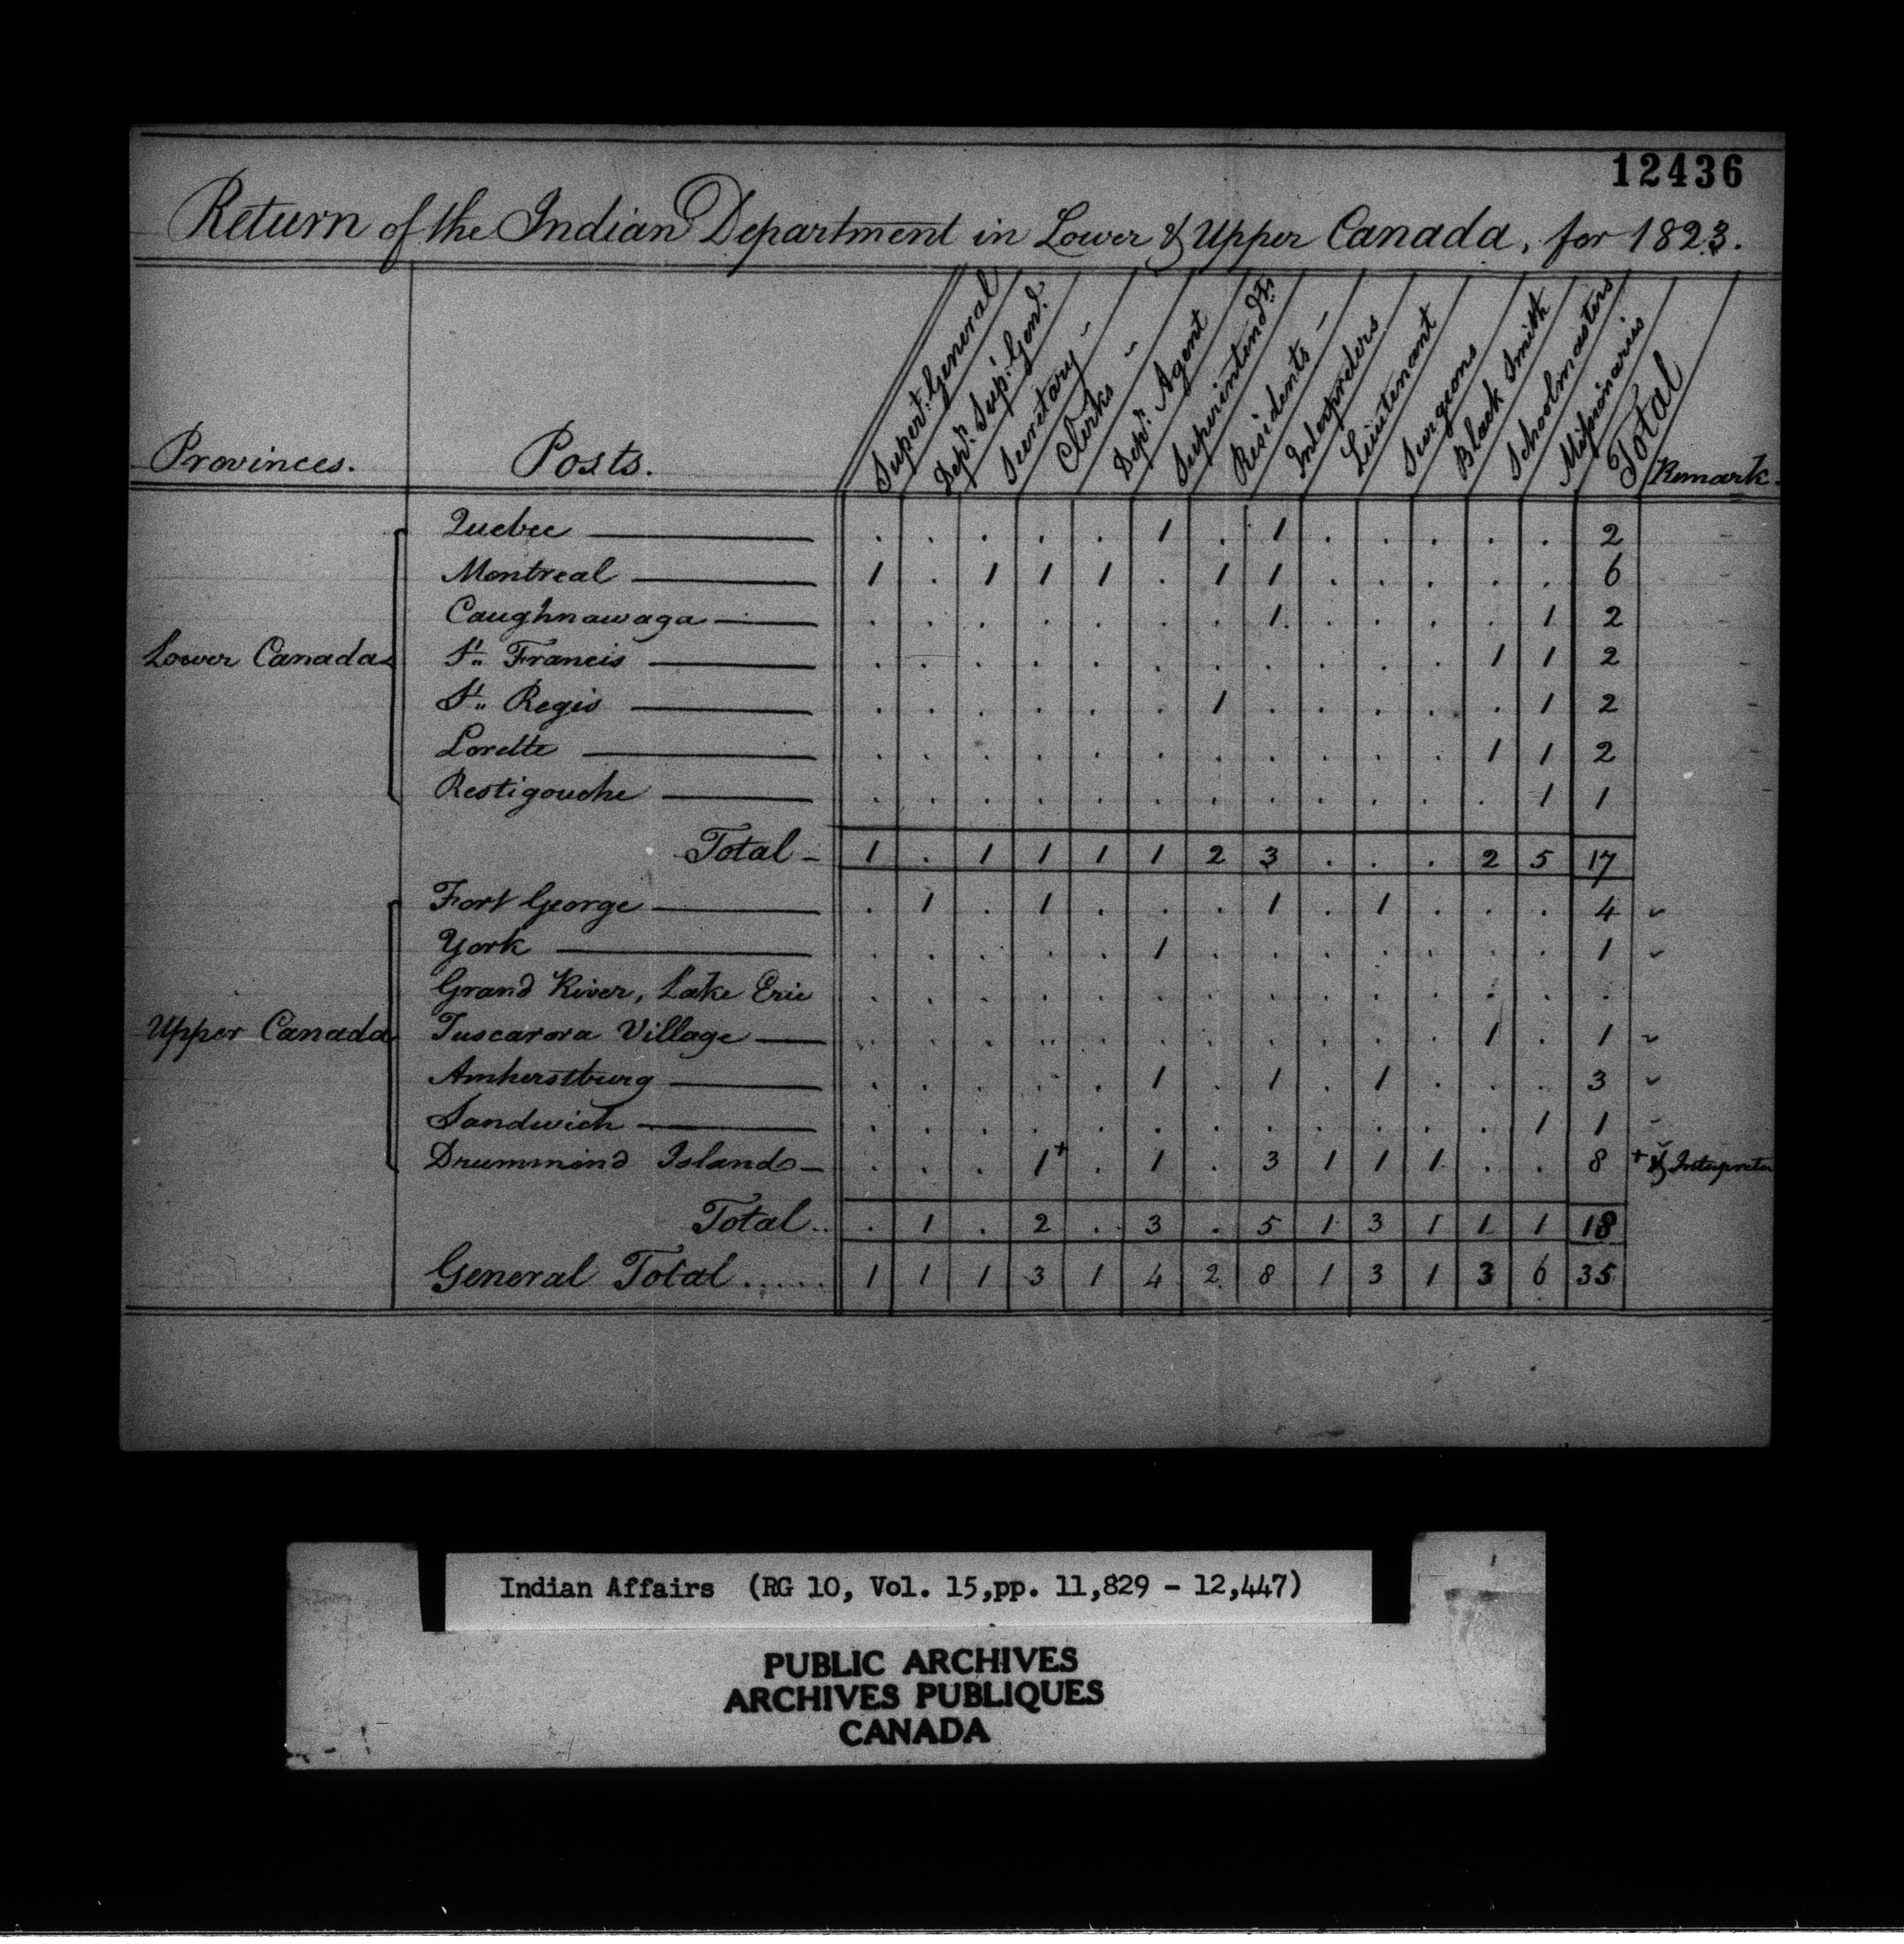 12436
Return of the Indian Department in Lower & Upper Canada, for 1823.
Provinces. Posts. Supert. General Depy. Sup. Genl. Secretary - Clerks - Depy. Agent Superintendts. Residents - Interpreters Lieutenant Surgeons Black Smith Schoolmasters Missionaries Total Remark
Quebec . . . . . 1 . 1 . . . . . 2
Montreal 1 . 1 1 1 . 1 1 . . . . . 6
Caughnawaga . . . . . . . 1 . . . . 1 2
Lower Canada St. Francis . . . . . . . . . . . 1 1 2
St. Regis . . . . . . 1 . . . . . 1 2
Lorette . . . . . . . . . . . 1 1 2
Restigouche . . . . . . . . . . . . 1 1
Total - 1 . 1 1 1 1 2 3 . . . 2 5 17
Fort George . 1 . 1 . . . 1 . 1 . . . 4
York . . . . . 1 . . . . . . . 1
Grand River, Lake Erie . . . . . . . . . . . . . .
Upper Canada Tuscarora Village . . . . . . . . . . . 1 . 1
Amherstburg . . . . . 1 . 1 . 1 . . . 3
Sandwich . . . . . . . . . . . . 1 1
Drummond Island - . . . 1+ . 1 . 3 1 1 1 . . 8 + & Interpreter
Total.. . 1 . 2 . 3 . 5 1 3 1 1 1 18
General Total ..... 1 1 1 3 1 4 2 8 1 3 1 3 6 35
Indian Affairs (RG 10, Vol. 15,pp. 11,829 - 12,447)
PUBLIC ARCHIVES
ARCHIVES PUBLIQUES
CANADA